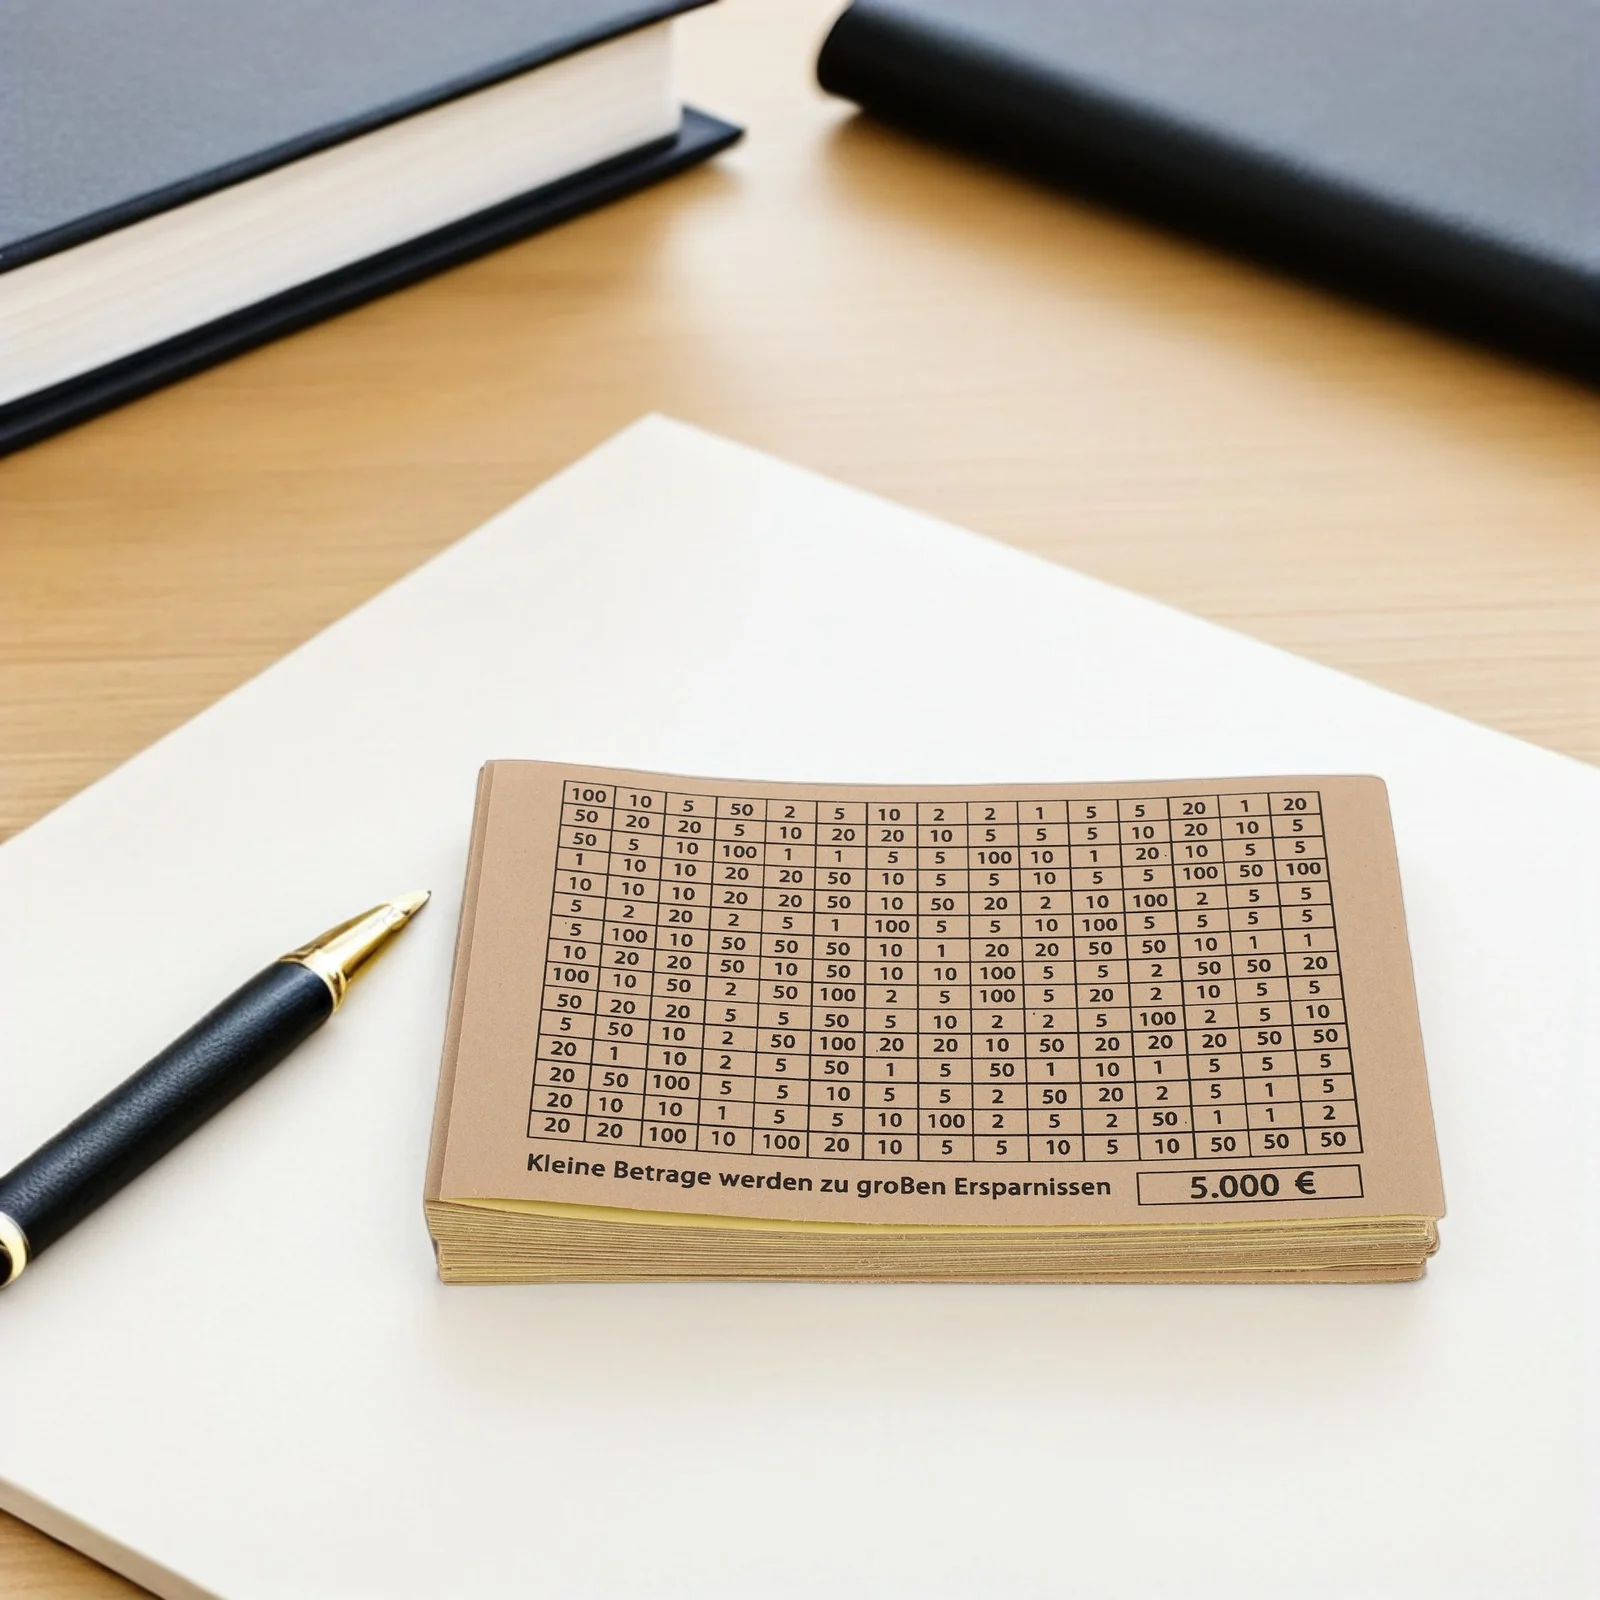 100 10 5 50 2 5 10 2 2 1 5 5 20 1 20
50 20 20 5 10 20 20 10 5 5 5 10 20 10 5
50 5 10 100 1 1 5 5 100 10 1 20 10 5 5
1 10 10 20 20 50 10 5 5 10 5 5 100 50 100
10 10 10 20 20 50 10 50 20 2 10 100 2 5 5
5 2 20 2 5 1 100 5 5 10 100 5 5 5 5
5 100 10 50 50 50 10 1 20 20 50 50 10 1 1
10 20 20 50 10 50 10 10 100 5 5 2 50 50 20
100 10 50 2 50 100 2 5 100 5 20 2 10 5 5
50 20 20 5 5 50 5 10 2 2 5 100 2 5 10
5 50 10 2 50 100 20 20 10 50 20 20 20 50 50
20 1 10 2 5 50 1 5 50 1 10 1 5 5 5
20 50 100 5 5 10 5 5 2 50 20 2 5 1 5
20 10 10 1 5 5 10 100 2 5 2 50 1 1 2
20 20 100 10 100 20 10 5 5 10 5 10 50 50 50
Kleine Betrage werden zu groBen Ersparnissen 5.000 €